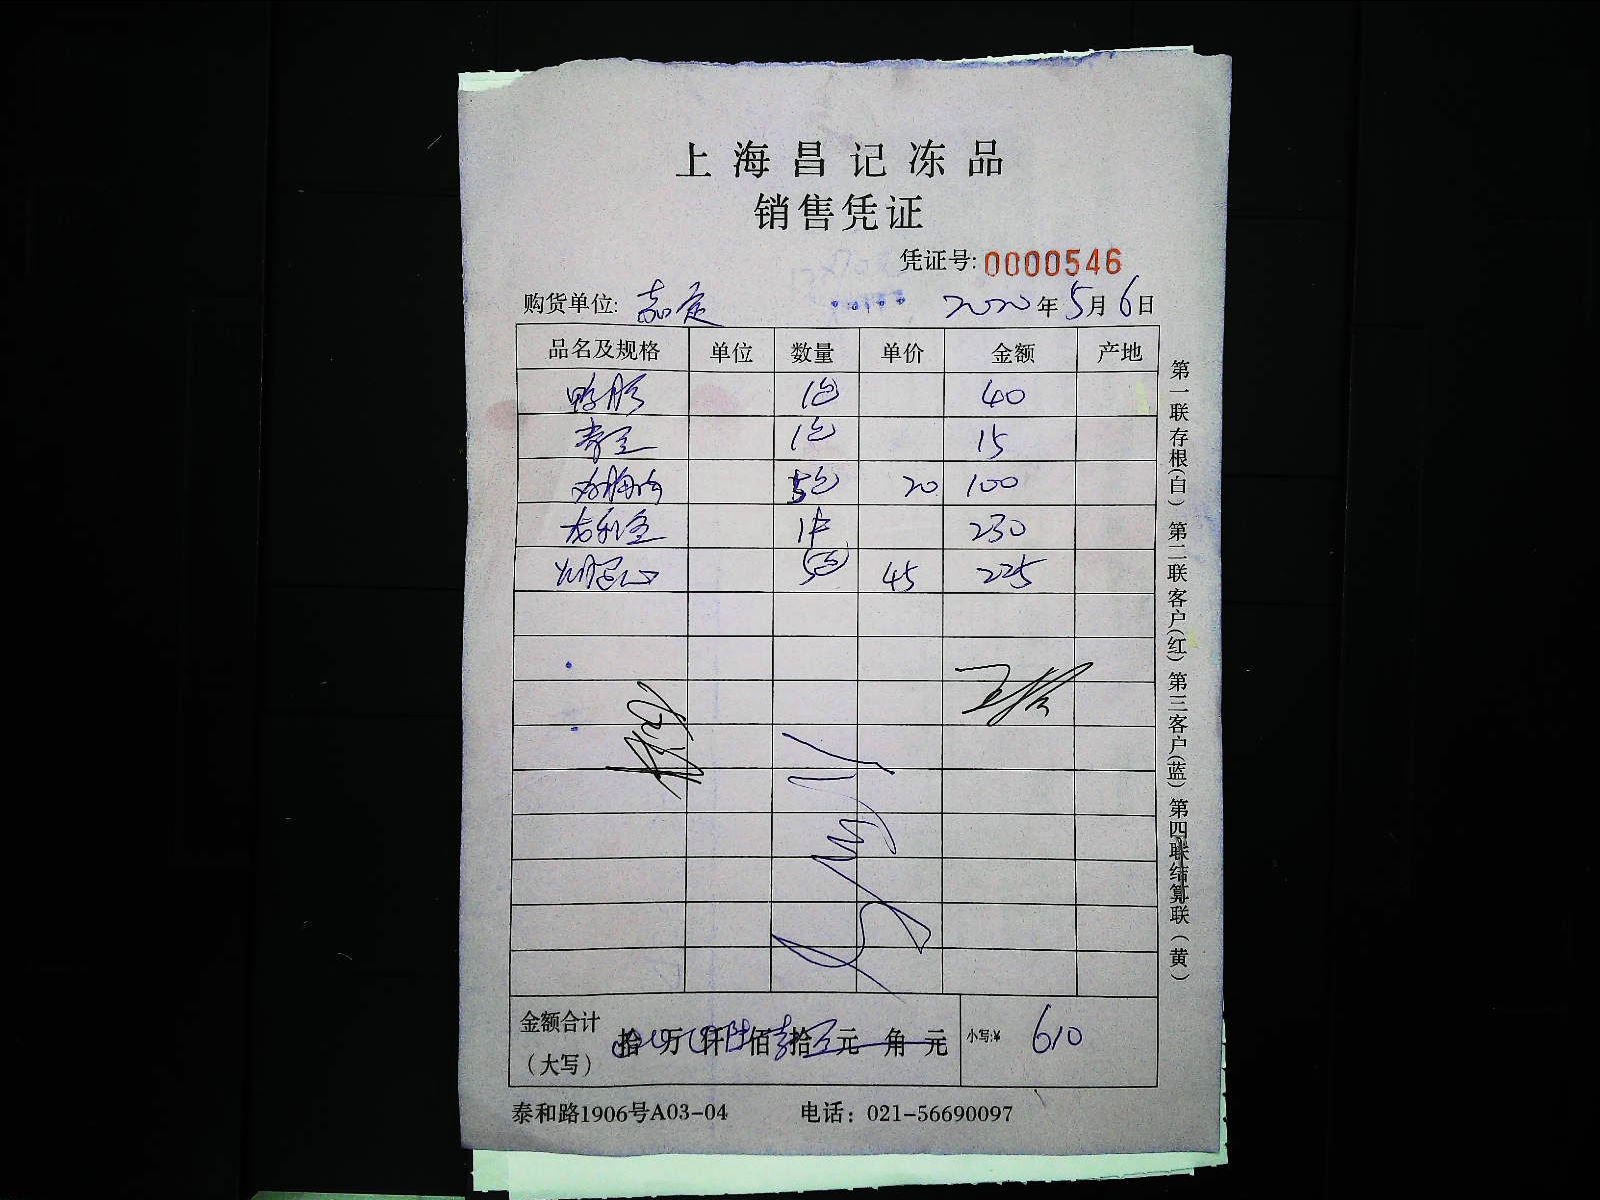 上海昌记冻品
销售凭证
凭证号: 0000546
购货单位: 嘉定 2020年5月6日
品名及规格 单位 数量 单价 金额 产地
鸭肠 1包 40
青豆 1包 15
5包 20 100
1件 230
5包 45 225
金额合计 拾 万 仟陆佰壹拾 元 角 元 小写:¥ 610
(大写)
泰和路1906号A03-04 电话: 021-56690097
第一联存根(白) 第二联客户(红) 第三客户(蓝) 第四联结算联(黄)